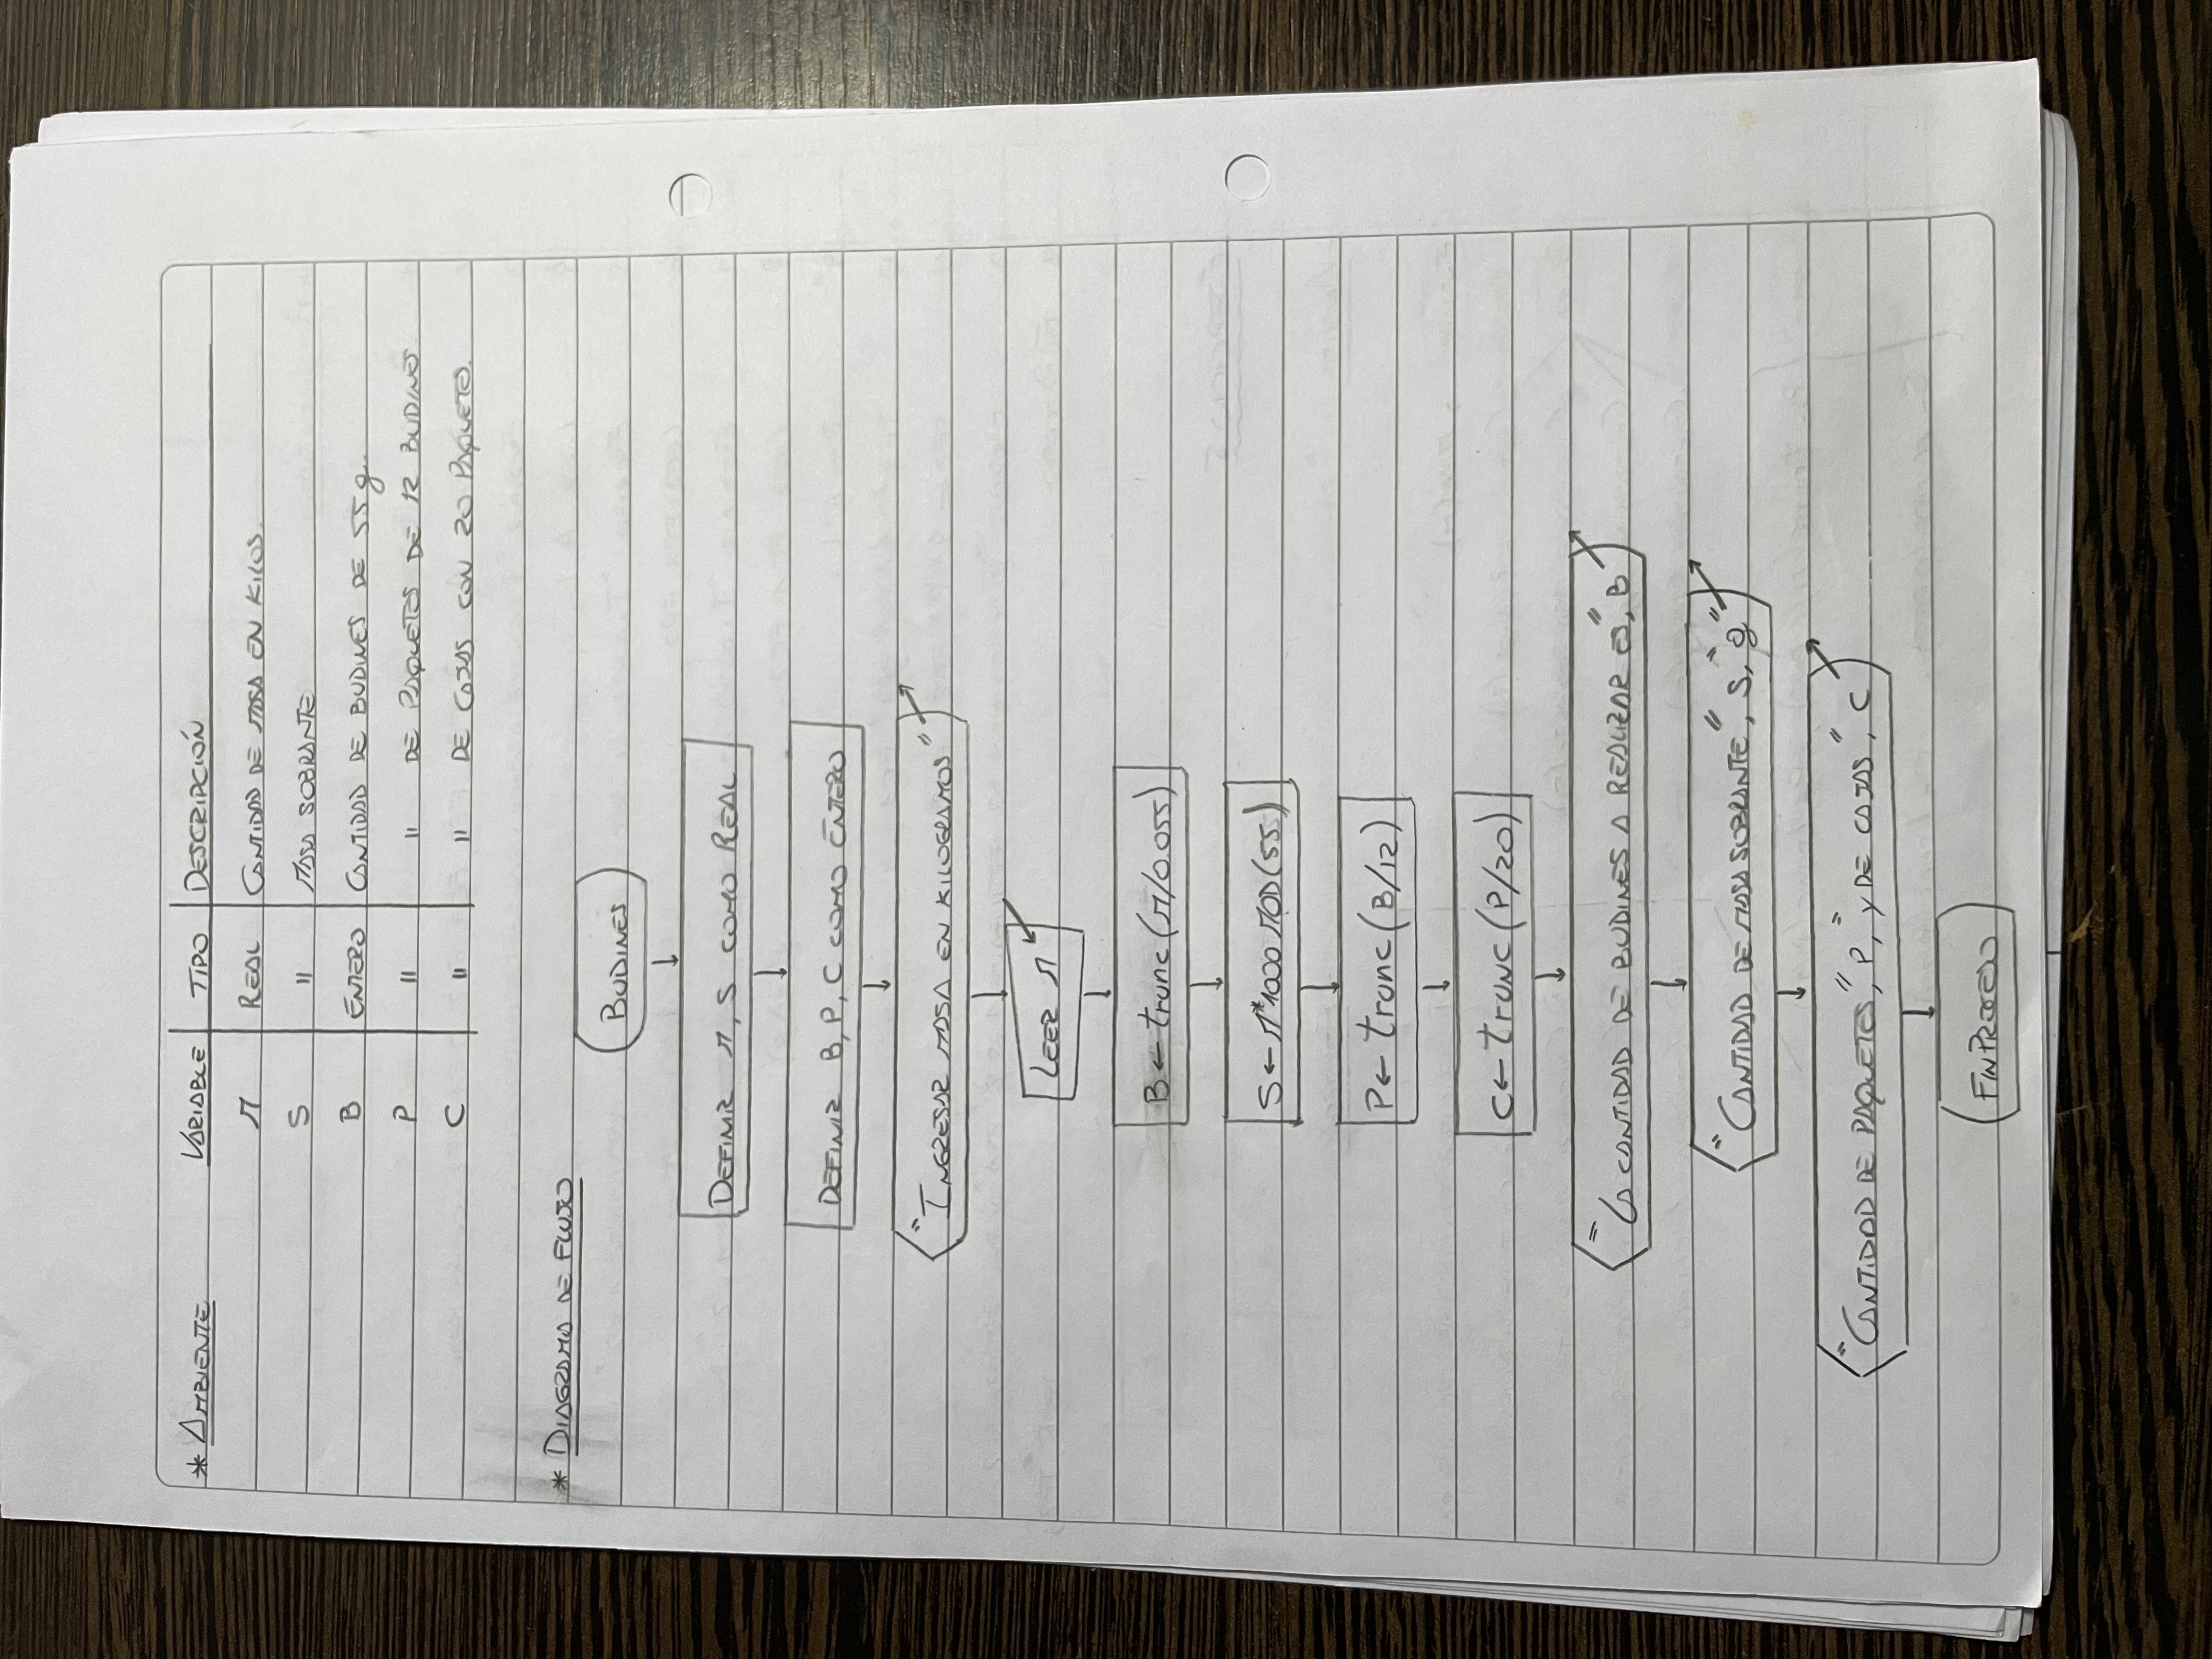 * AMBIENTE VARIABLE TIPO DESCRIPCIÓN
M REAL CANTIDAD DE MASA EN KILOS.
S " MASA SOBRANTE
B ENTERO CANTIDAD DE BUDINES DE 55g.
P " " DE PAQUETES DE 12 BUDINES.
C " " DE CAJAS CON 20 PAQUETES.
* DIAGRAMA DE FLUJO
BUDINES
DEFINIR M, S COMO REAL
DEFINIR B, P, C COMO ENTERO
"INGRESAR MASA EN KILOGRAMOS"
LEER M
B ← trunc (M/0.055)
S ← M*1000 MOD (55)
P ← trunc (B/12)
C ← trunc (P/20)
"LA CANTIDAD DE BUDINES A REALIZAR ES", B
"CANTIDAD DE MASA SOBRANTE", S, "g"
"CANTIDAD DE PAQUETES", P, "Y DE CAJAS", C
FINPROCESO